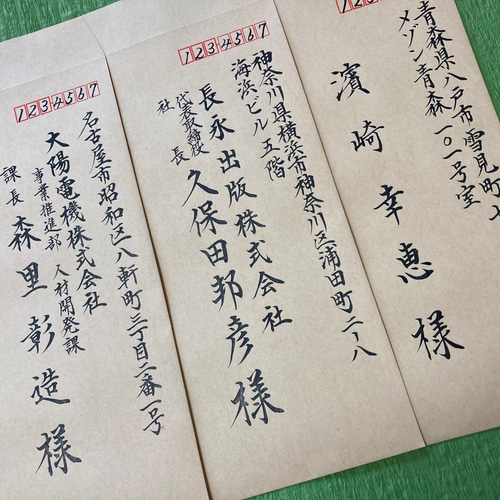 123
青森県八戸市雪見町
メゾン青森一〇一号室
濱崎幸恵様
1234567
神奈川県横浜市神奈川区浦田町二ー八
海浜ビル五階
長永出版株式会社
代表取締役
社長
久保田邦彦様
1234567
名古屋市昭和区八軒町三丁目二番一号
大陽電機株式会社
事業推進部 人材開発課
課長 森里彰造様